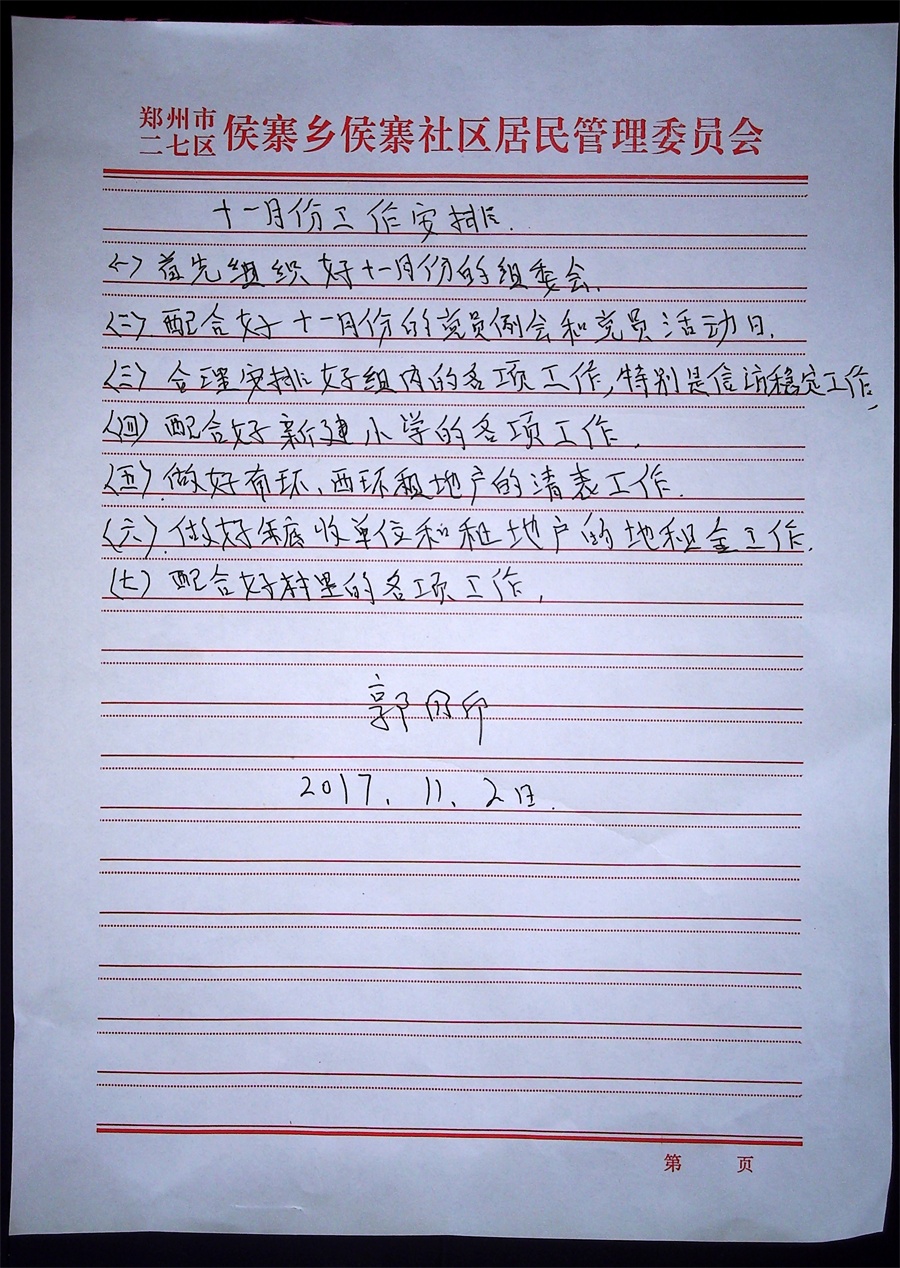 郑州市
二七区 侯寨乡侯寨社区居民管理委员会
十一月份工作安排.
〈一〉首先组织好十一月份的组委会.
〈二〉配合好十一月份的党员例会和党员活动日.
〈三〉合理安排好组内的各项工作,特别是信访稳定工作,
〈四〉配合好新建小学的各项工作.
〈五〉.做好南环、西环租地户的清表工作.
〈六〉.做好年底收单位和租地户的地租金工作.
〈七〉配合好村里的各项工作,
郭
2017.11.2日.
第 页